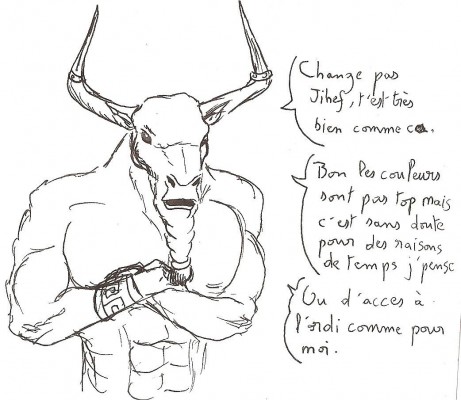 Change pas
Jihef, t'est très
bien comme ca.
Bon les couleurs
sont pas top mais
c'est sans doute
pour des raisons
de temps j'pense
Ou d'acces à
l'ordi comme pour
moi.